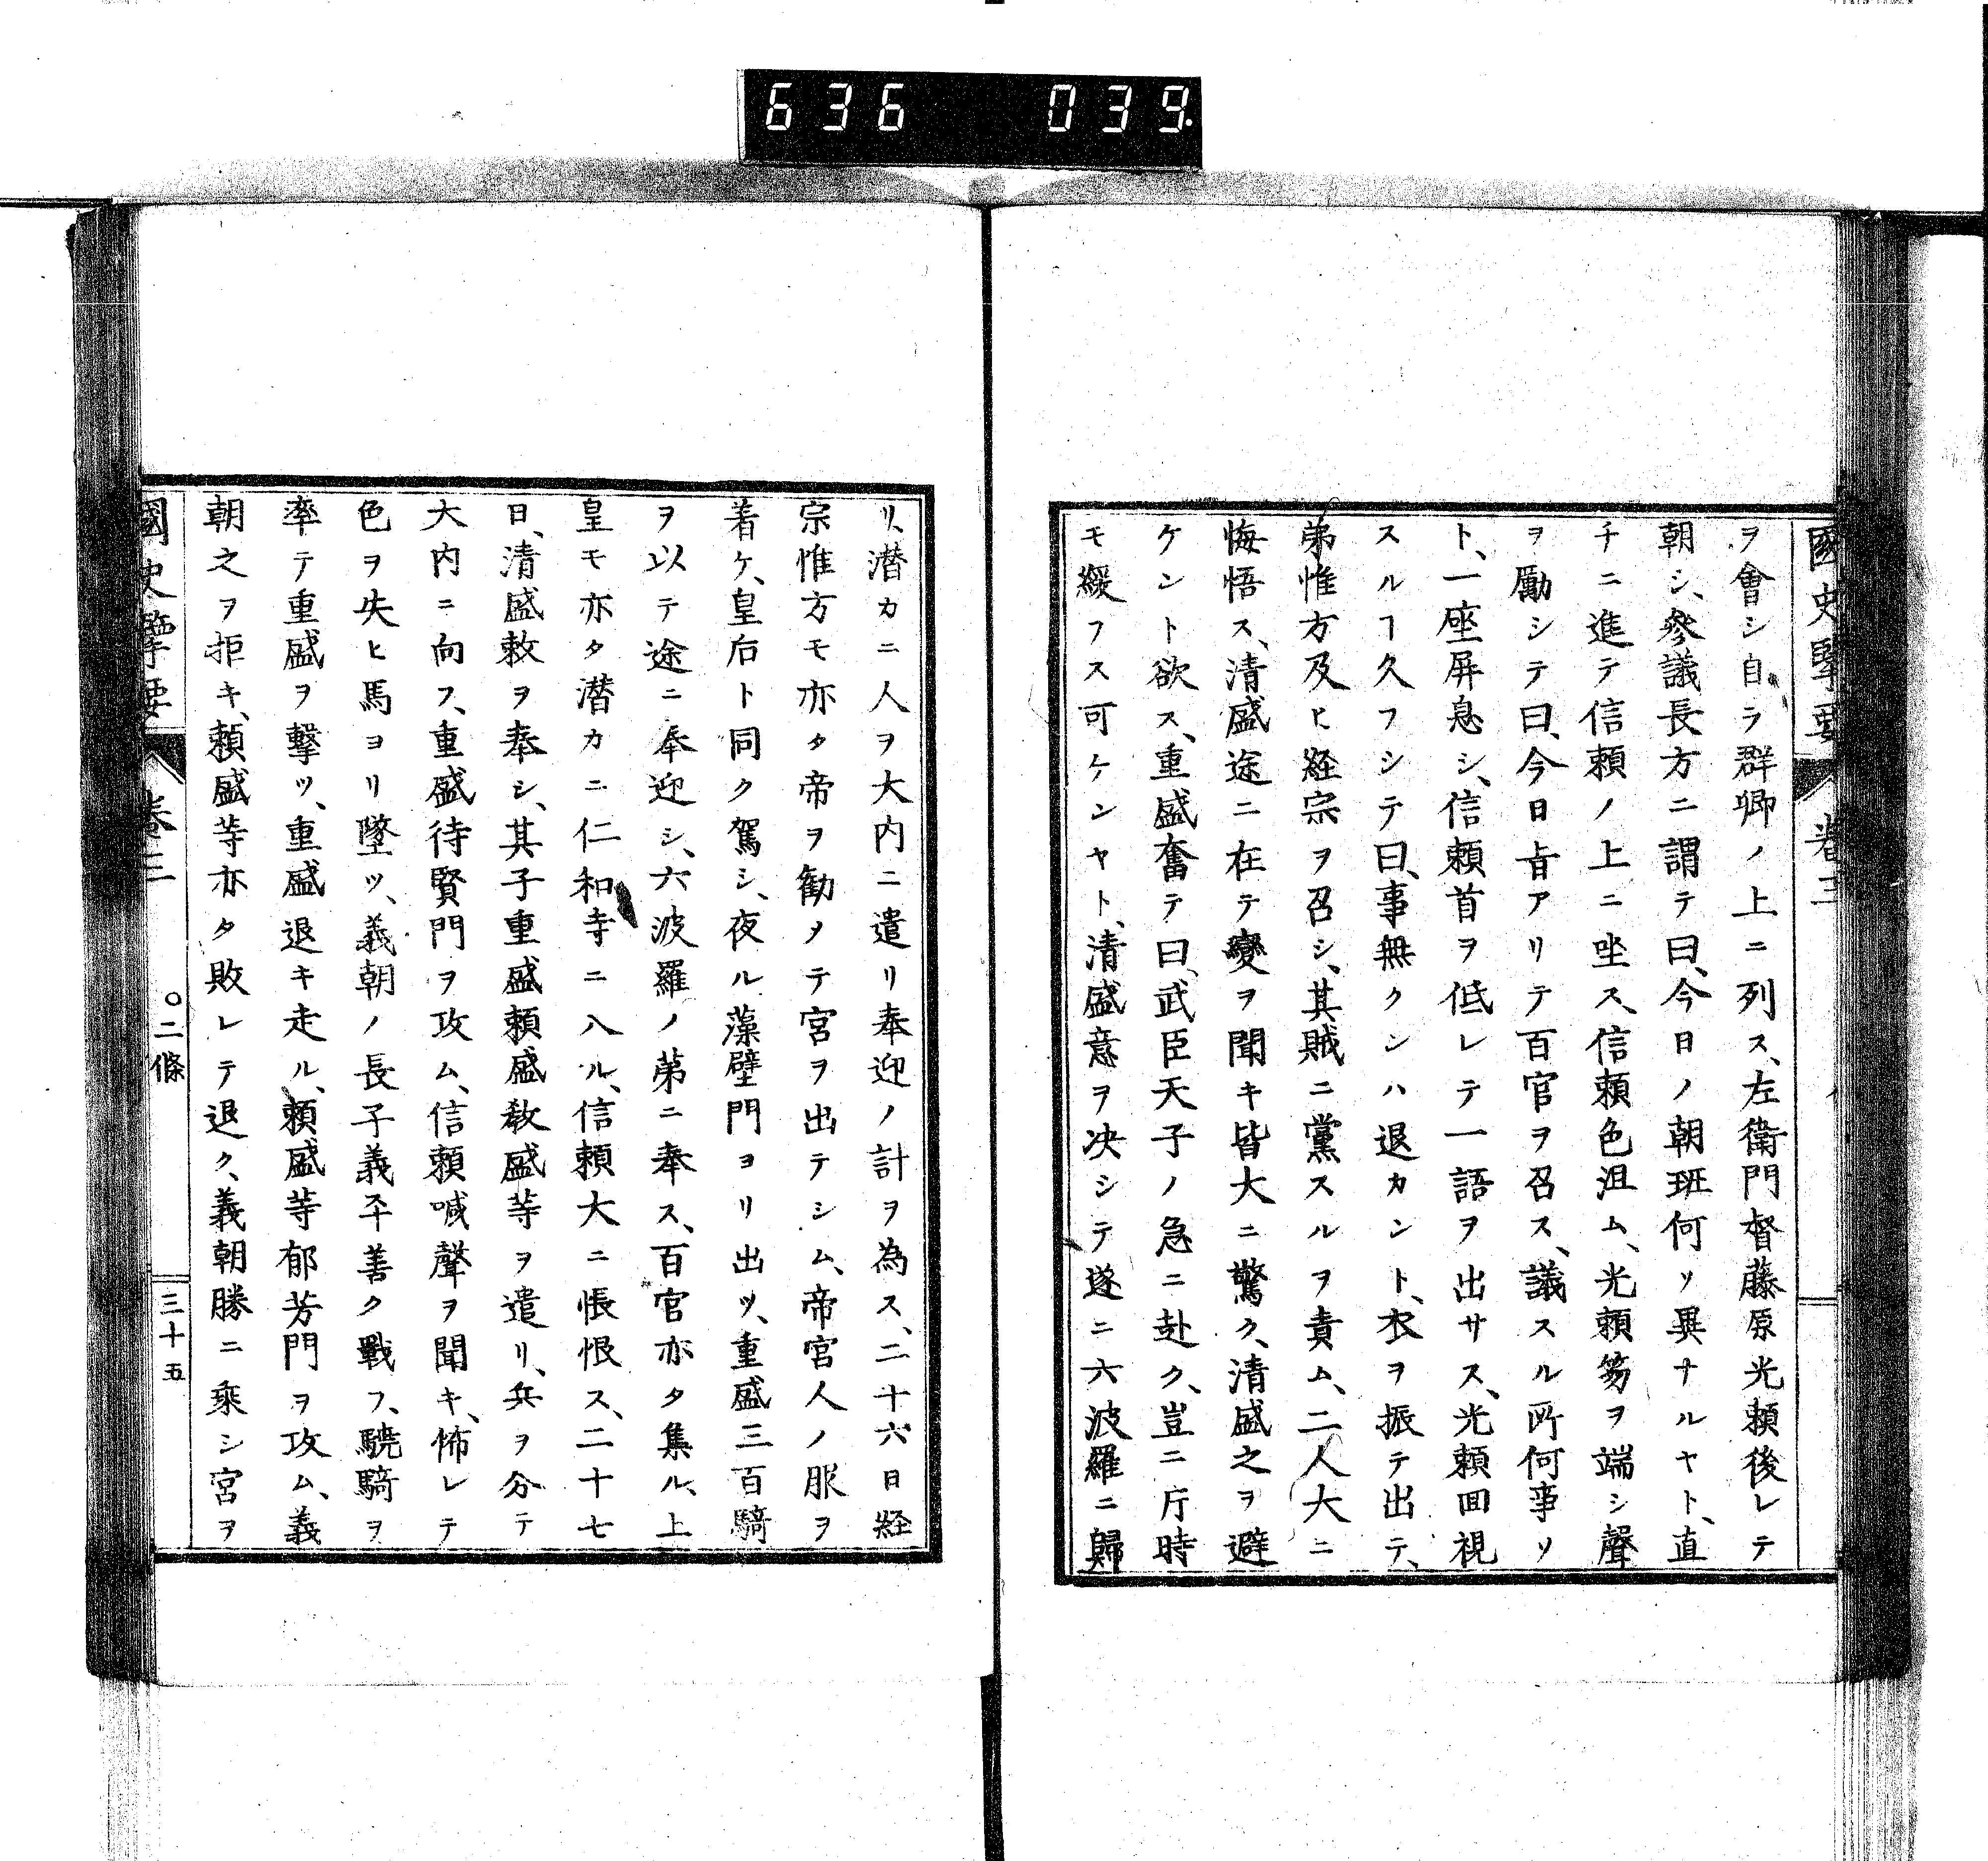 636 039.
國史擥要 卷三
ヲ會シ自ラ群卿ノ上ニ列ス、左衛門督藤原光頼後レテ
朝シ、參議長方ニ謂テ曰、今日ノ朝班何ソ異ナルヤト、直
チニ進テ信頼ノ上ニ坐ス、信頼色沮ム、光頼笏ヲ端シ聲
ヲ勵シテ曰、今日旨アリテ百官ヲ召ス、議スル所何事ソ
ト、一座屏息シ、信頼首ヲ低レテ一語ヲ出サス、光頼回視
スルヿ久フシテ曰、事無クンハ退カント、衣ヲ振テ出テ、
弟惟方及ヒ経宗ヲ召シ、其賊ニ黨スルヲ責ム、二人大ニ
悔悟ス、清盛途ニ在テ變ヲ聞キ皆大ニ驚ク、清盛之ヲ避
ケント欲ス、重盛奮テ曰、武臣天子ノ急ニ赴ク、豈ニ片時
モ緩フス可ケンヤト、清盛意ヲ决シテ遂ニ六波羅ニ歸
リ、潜カニ人ヲ大内ニ遣リ奉迎ノ計ヲ為ス、二十六日経
宗惟方モ亦タ帝ヲ勧メテ宮ヲ出テシム、帝宮人ノ服ヲ
着ケ、皇后ト同ク駕シ、夜ル藻壁門ヨリ出ツ、重盛三百騎
ヲ以テ途ニ奉迎シ、六波羅ノ第ニ奉ス、百官亦タ集ル、上
皇モ亦タ潜カニ仁和寺ニ入ル、信頼大ニ悵恨ス、二十七
日、清盛敕ヲ奉シ、其子重盛頼盛教盛等ヲ遣リ、兵ヲ分テ
大内ニ向フ、重盛待賢門ヲ攻ム、信頼喊聲ヲ聞キ、怖レテ
色ヲ失ヒ馬ヨリ墜ツ、義朝ノ長子義平善ク戰フ、驍騎ヲ
率テ重盛ヲ擊ツ、重盛退キ走ル、頼盛等郁芳門ヲ攻ム、義
朝之ヲ拒キ、頼盛等亦タ敗レテ退ク、義朝勝ニ乘シ宮ヲ
國史擥要 卷三 〇二條 三十五